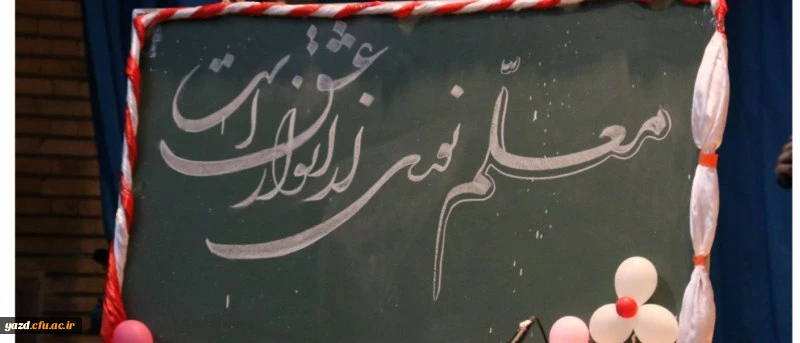 معلّم نوری از انوار عشق است
yazd.cfu.ac.ir